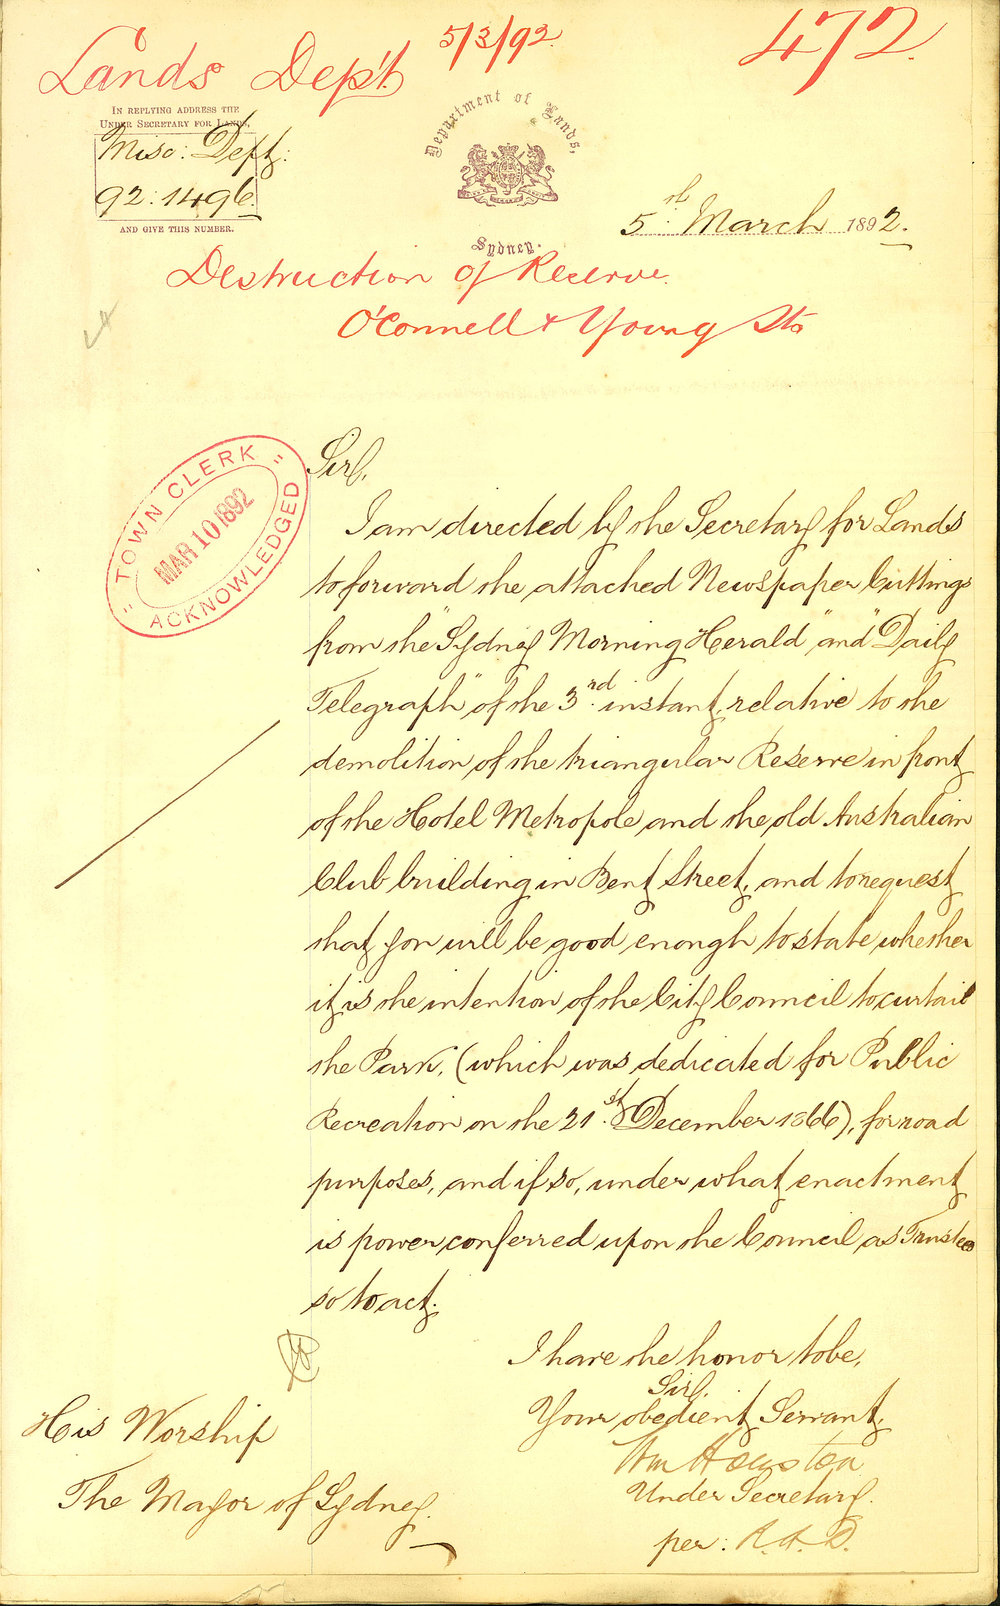 Lands Dep't.
5/3/92.
472.
IN REPLYING ADDRESS THE
UNDER SECRETARY FOR LANDS,
Misc: Dept:
92: 1496.
AND GIVE THIS NUMBER.
Department of Lands,
Sydney.
5th. March 1892.
Destruction of Reserve.
O'Connell & Young Sts
"TOWN CLERK"
MAR 10 1892
ACKNOWLEDGED
Sir,
I am directed by the Secretary for Lands
to forward the attached Newspaper Cuttings
from the "Sydney Morning Herald" and "Daily
Telegraph" of the 3rd. instant, relative to the
demolition of the triangular Reserve in front
of the Hotel Metropole and the old Australian
Club building in Bent Street, and to request
that you will be good enough to state whether
it is the intention of the City Council to curtail
the Park, (which was dedicated for Public
Recreation on the 21st. December 1866), for road
purposes, and if so, under what enactment
is power conferred upon the Council as Trustees
so to act.
I have the honor to be,
Sir,
Your obedient Servant,
Wm Houston
Under Secretary.
per: R.A.D.
His Worship
The Mayor of Sydney.